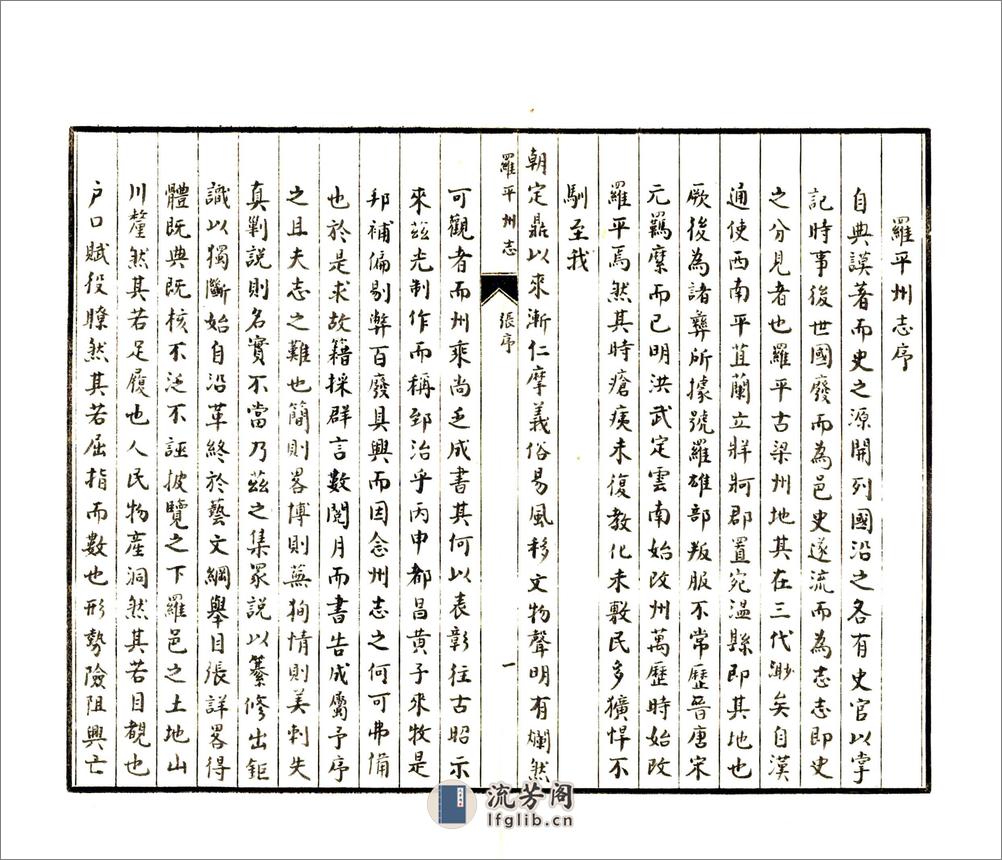 羅平州志序
自典謨著而史之源開列國沿之各有史官以掌
記時事後世國廢而為邑史遂流而為志志即史
之分見者也羅平古梁州地其在三代渺矣自漢
通使西南平苴蘭立牂牁郡置宛温縣即其地也
厥後為諸彝所據號羅雄部叛服不常歷晉唐宋
元羈縻而已明洪武定雲南始改州萬歷時始改
羅平焉然其時瘡痍未復教化未敷民多獷悍不
馴至我
朝定鼎以來漸仁摩義俗易風移文物聲明有斕然
羅平州志 張序 一
可觀者而州乘尚乏成書其何以表彰往古昭示
來茲光制作而稱郅治乎丙申都昌黄子來牧是
邦補偏剔弊百廢具興而因念州志之何可弗備
也於是求故籍採群言數閱月而書告成屬予序
之且夫志之難也簡則畧博則蕪狥情則美刺失
真剿說則名實不當乃茲之集眾說以纂修出鉅
識以獨斷始自沿革終於藝文綱舉目張詳畧得
體既典既核不泛不誣披覽之下羅邑之土地山
川釐然其若足履也人民物產洞然其若目覩也
户口賦役瞭然其若屈指而數也形勢險阻興亡
流芳阁
lfglib.cn